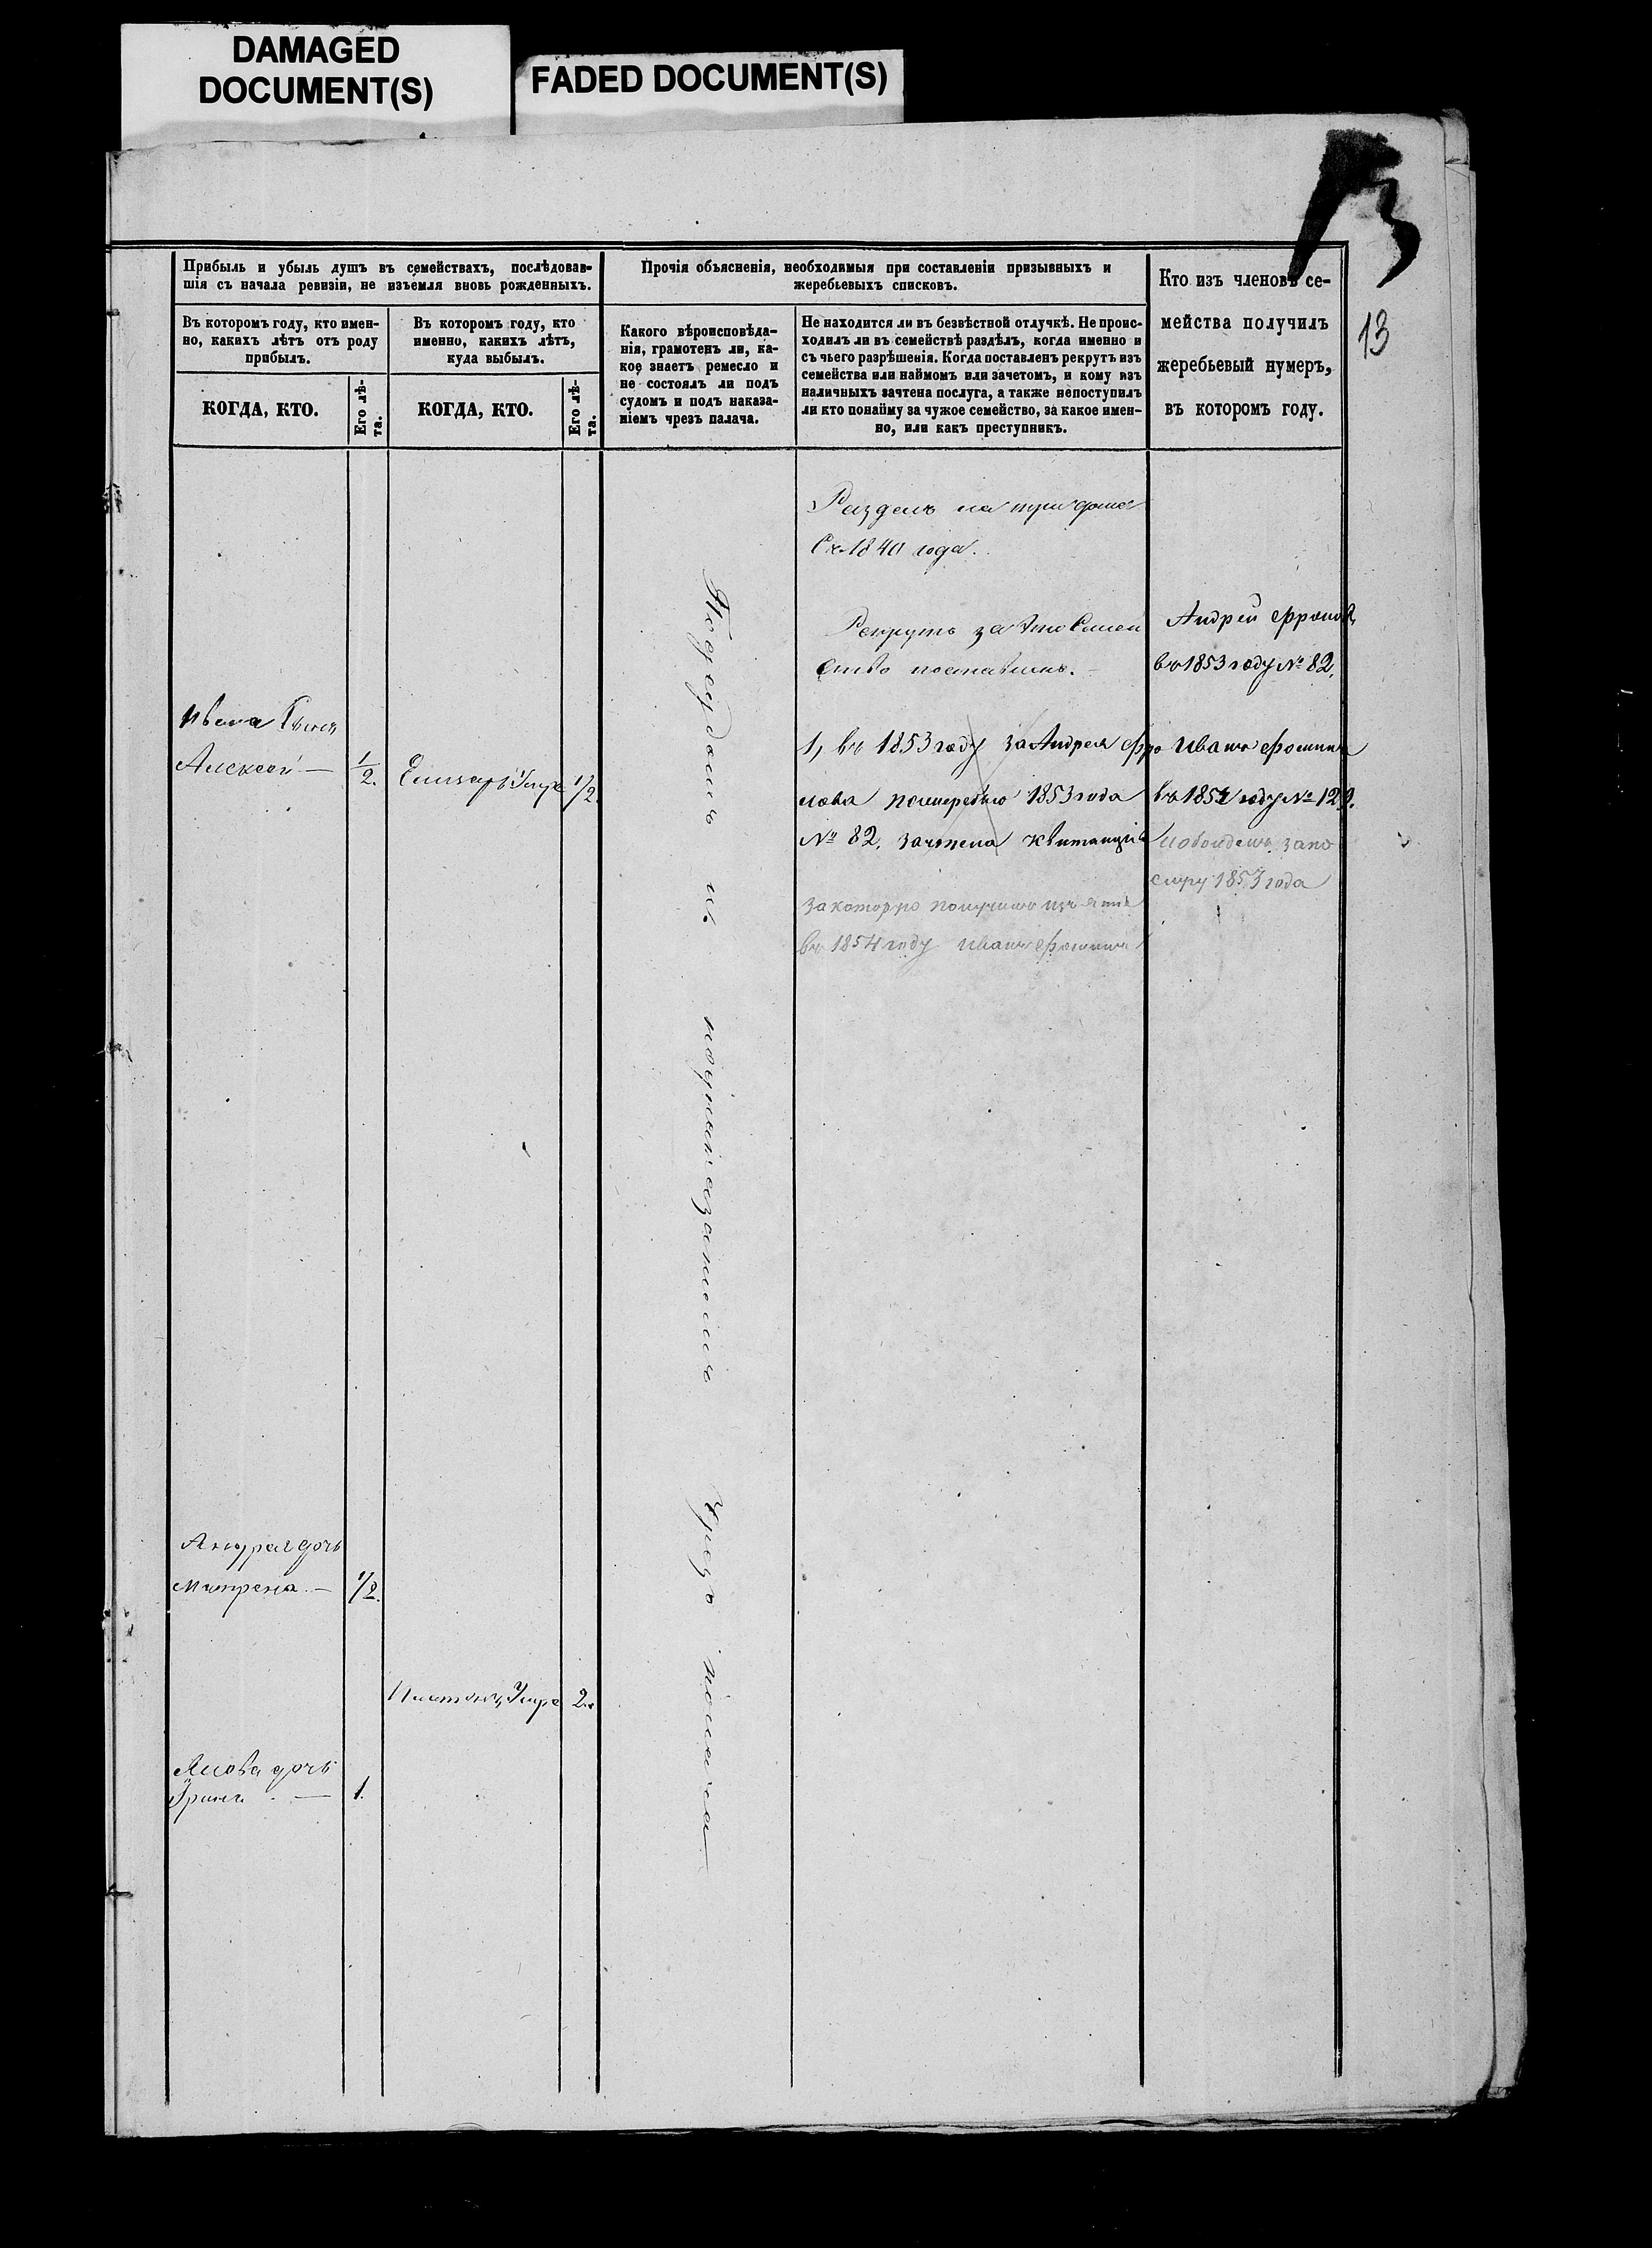 DAMAGED
DOCUMENT(S)
FADED DOCUMENT(S)
13
Прибыль и убыль душъ въ семействахъ, послѣдовав-
шія съ начала ревизіи, не изъемля вновь рожденныхъ.
Прочія объясненія, необходимыя при составленіи призывныхъ и
жеребьевыхъ списковъ.
Кто изъ членовъ се-
мейства получилъ
жеребьевый нумеръ,
въ которомъ году.
Въ которомъ году, кто имен-
но, какихъ лѣтъ отъ роду
прибылъ.
Въ которомъ году, кто
именно, какихъ лѣтъ,
куда выбылъ.
Какого вѣроисповѣда-
нія, грамотенъ ли, ка-
кое знаетъ ремесло и
не состоялъ ли подъ
судомъ и подъ наказа-
ніемъ чрезъ палача.
Не находится ли въ безвѣстной отлучкѣ. Не проис-
ходилъ ли въ семействѣ раздѣлъ, когда именно и
съ чьего разрѣшенія. Когда поставленъ рекрутъ изъ
семейства или наймомъ или зачетомъ, и кому изъ
наличныхъ зачтена послуга, а также непоступилъ
ли кто понайму за чужое семейство, за какое имен-
но, или какъ преступникъ.
КОГДА, КТО.
Его лѣ-
та.
КОГДА, КТО.
Его лѣ-
та.
Разделъ на три
Съ 1840 года.
Рекрутъ за это Семей
ство поставленъ.
Андрей Фролов
въ 1853 году № 82.
Ивана Сынъ
Алексей — 1/2.
Елизаръ Умре 1/2.
1, въ 1853 году за Андрея Фро
лова поочередью 1853 года
№ 82. зачтена квитанція
за которую получилъ
въ 1854 году Иванъ Фоминъ
Иванъ Фоминъ
въ 1854 году № 129.
1853 года
Подсудомъ и наказаниемъ Чрезъ палача
Андрея дочь
Матрена — 1/2.
Платонъ Умре 2.
дочь
Ирина — 1.